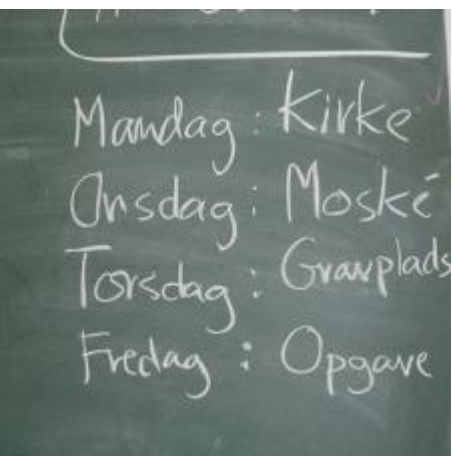 Mandag: Kirke
Onsdag: Moské
Torsdag: Gravplads
Fredag: Opgave